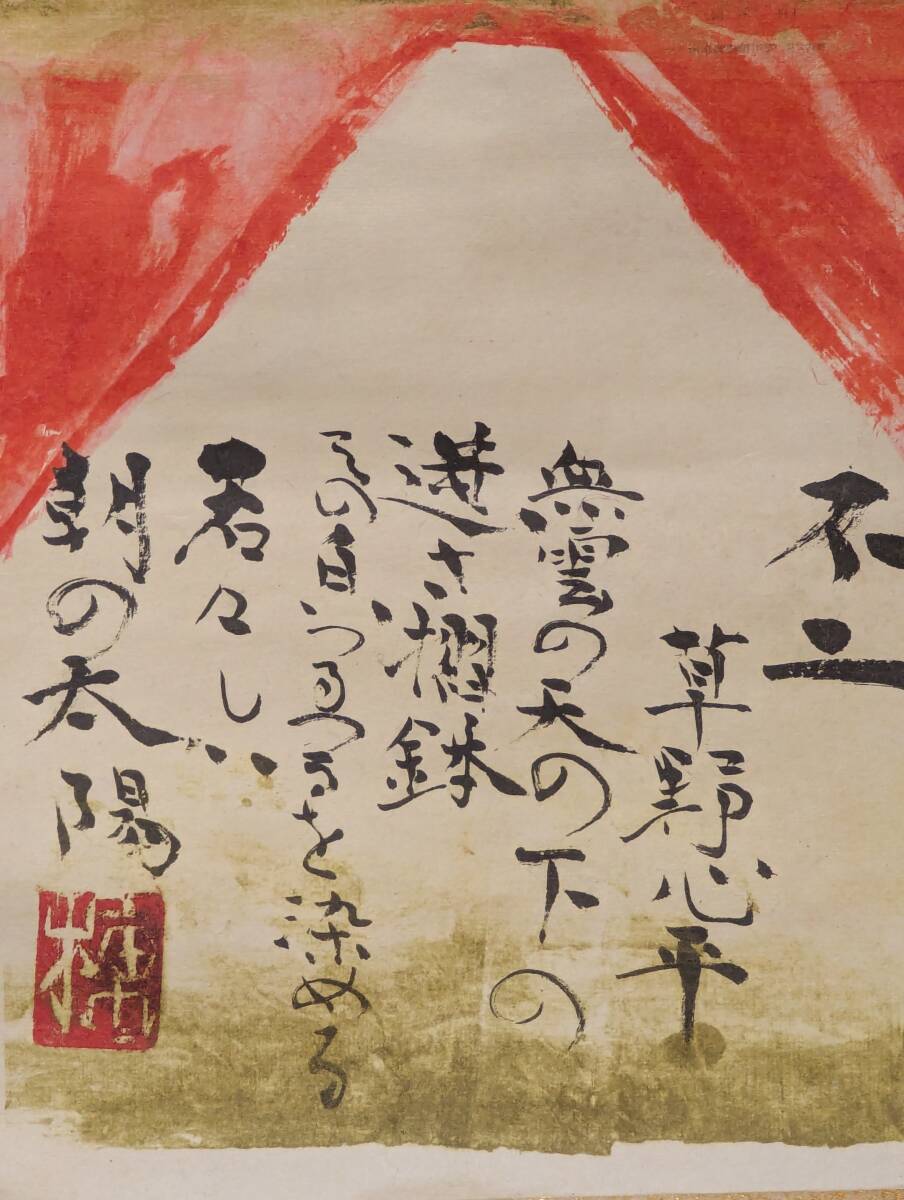 不二
草野心平
無雲の天の下の
逆さ摺鉢
その白つるつるを染める
若々しい
朝の太陽